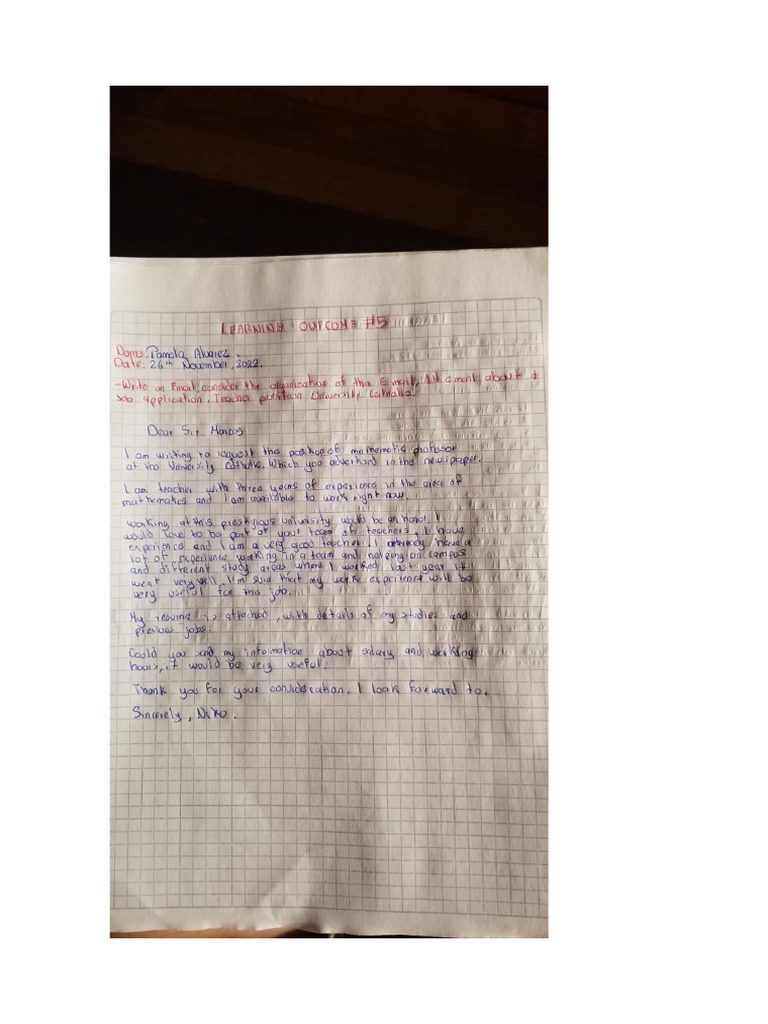 LEARNING OUTCOME #5
Name: Pamela Alvarez.
Date: 26th November, 2022.
- Write an Email, consider the organization of the Email, IN email about a
Job application. Teacher position University Catholic.
Dear Sir. Marcos
I am writing to request the position of mathematic profesor
at the University Catholic. Which you advertised in the newspaper.
I am teacher with three years of experience in the area of
mathematics and I am available to work right now.
Working at this prestigious university would be an honor. I
would love to be part of your team of teachers, I have
experience and I am a very good teacher. I have a
lot of experience working in a team and helping on campos
and different study areas where I worked last year it
went very well. I'm sure that my work experience will be
very useful for this job.
My resume is attached, with details of my studies and
previous jobs.
Could you send my information about salary and, working
hours, it would be very useful.
Thank you for your consideration. I look forward to.
Sincerely, Niko.